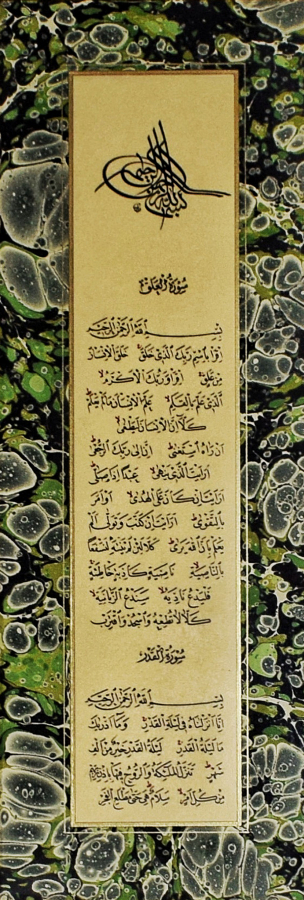 سورة العلق
بسم الله الرحمن الرحيم
اقرأ باسم ربك الذي خلق خلق الإنسان
من علق اقرأ وربك الأكرم
الذي علم بالقلم علم الإنسان ما لم يعلم
كلا إن الإنسان ليطغى
أن رآه استغنى إن إلى ربك الرجعى
أرأيت الذي ينهى عبدا إذا صلى
أرأيت إن كان على الهدى أو أمر
بالتقوى أرأيت إن كذب وتولى ألم
يعلم بأن الله يرى كلا لئن لم ينته لنسفعا
بالناصية ناصية كاذبة خاطئة
فليدع ناديه سندع الزبانية
كلا لا تطعه واسجد واقترب
سورة القدر
بسم الله الرحمن الرحيم
إنا أنزلناه في ليلة القدر وما أدريك
ما ليلة القدر ليلة القدر خير من ألف
شهر تنزل الملئكة والروح فيها بإذن ربهم
من كل أمر سلام هي حتى مطلع الفجر